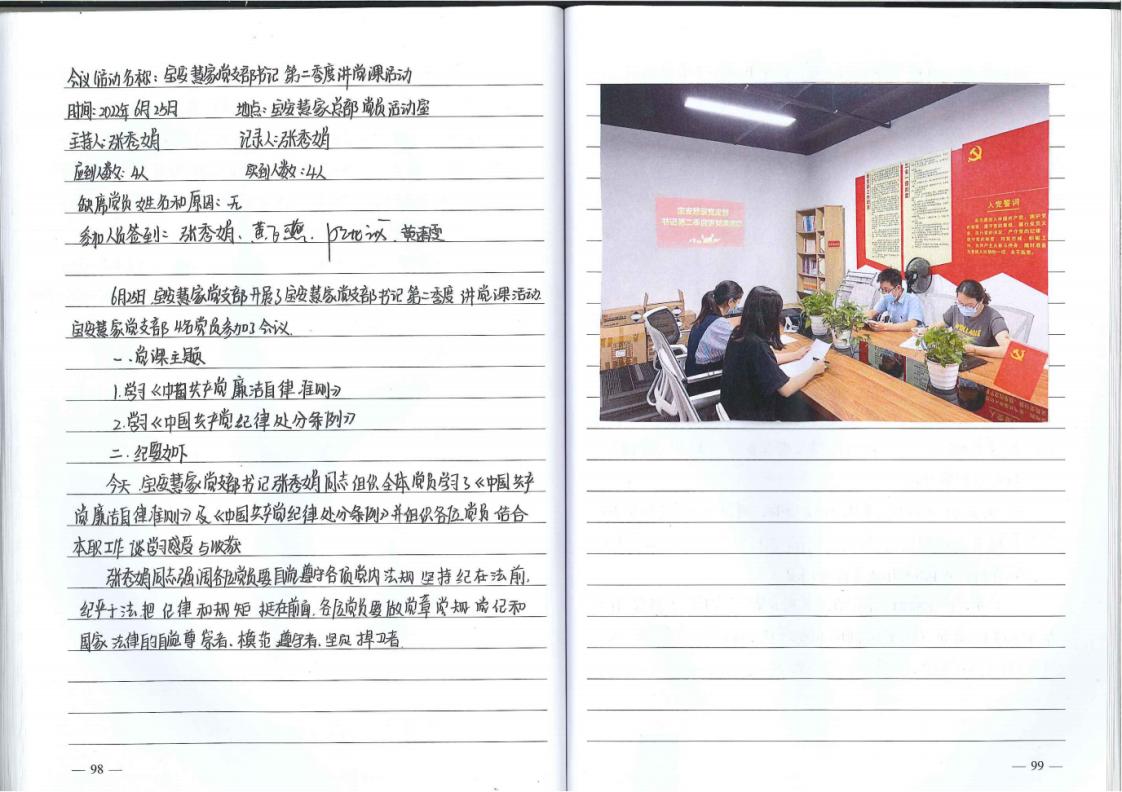 会议(活动)名称:宝安慧家党支部书记第二季度讲党课活动
时间:2022年6月25日 地点:宝安慧家总部党员活动室
主持人:张秀娟 记录人:张秀娟
应到人数:4人 实到人数:4人
缺席党员姓名和原因:无
参加人员签到: 张秀娟、黄飞燕、
6月25日宝安慧家党支部开展了宝安慧家党支部书记第二季度讲党课活动
宝安慧家党支部4名党员参加了会议.
一、党课主题
1.学习《中国共产党廉洁自律准则》
2.学习《中国共产党纪律处分条例》
二、纪要如下
今天,宝安慧家党支部书记张秀娟同志组织全体党员学习了《中国共产
党廉洁自律准则》及《中国共产党纪律处分条例》并组织各位党员结合
本职工作谈学习感受与收获
张秀娟同志强调各位党员要自觉遵守各项党内法规坚持纪在法前,
纪严于法,把纪律和规矩挺在前面.各位党员要做党章党规党纪和
国家法律的自觉尊崇者、模范遵守者、坚定捍卫者.
— 98 —
宝安慧家党支部
书记第二季度讲党课活动
入党誓词
— 99 —